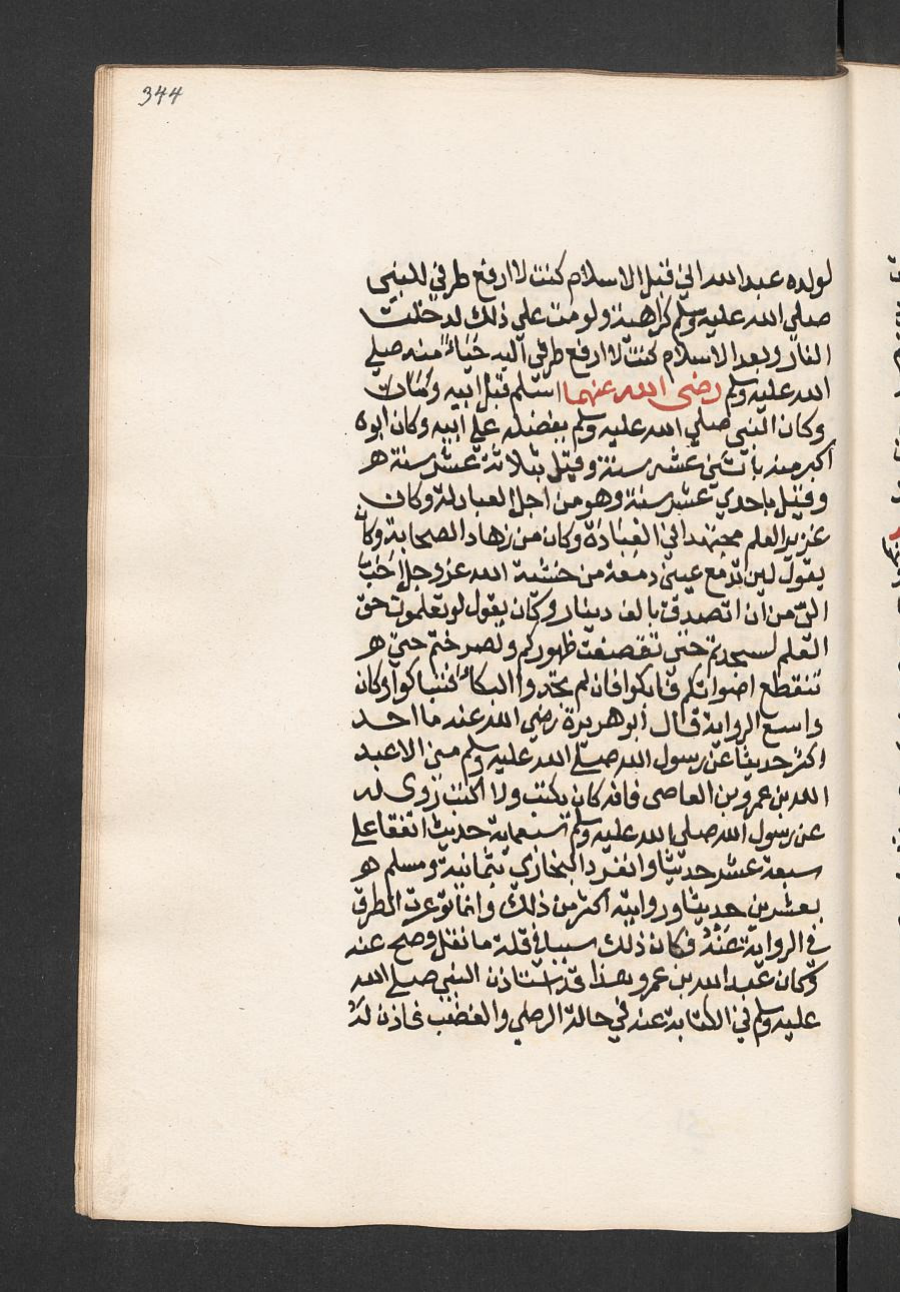 344
لولده عبد الله اني قبل الاسلام كنت لا ارفع طرفي للنبي
صلي الله عليه وسلم كراهية ولو مت علي ذلك لدخلت
النار وبعد الاسلام كنت لا ارفع طرفي اليه حياءً منه صلي
الله عليه وسلم رضي الله عنهما اسلم قبل ابيه وكان
وكان النبي صلي الله عليه وسلم يفضله علي ابيه وكان ابوه
اكبر منه باثنتي عشر سنة وقيل بثلاثة عشر سنة هـ
وقيل باحدي عشر سنة وهو من اجل العبادلة وكان
عزيز العلم مجتهدا في العبادة وكان من زهاد الصحابة وكان
يقول لين تدمع عيني دمعة من خشية الله عز وجل احب
الي من ان اتصدق بالف دينار وكان يقول لو تعلمون حق
العلم لسجدتم حتي تقصفت ظهوركم ولصرختم حتي هـ
تنقطع اصواتكم فابكوا فان لم تجدوا البكاء فتباكوا وكان
واسع الرواية قال ابو هريرة رضي الله عنه ما احد
اكثر حديثا عن رسول الله صلي الله عليه وسلم مني الا عبد
الله بن عمرو بن العاصي فانه كان يكتب ولا اكتب روي له
عن رسول الله صلي الله عليه وسلم سبعماية حديث اتفقا علي
سبعة عشر حديثا وانفرد البخاري بثمانية ومسلم هـ
بعشرين حديثا وروايته اكثر من ذلك وانما توعرت الطرق
في الرواية عنه فكان ذلك سببا في قلة ما نقل وصح عنه
وكان عبد الله بن عمرو هذا قد استاذن النبي صلي الله
عليه وسلم في الكتابة عنه في حالة الرضي والغضب فاذن له